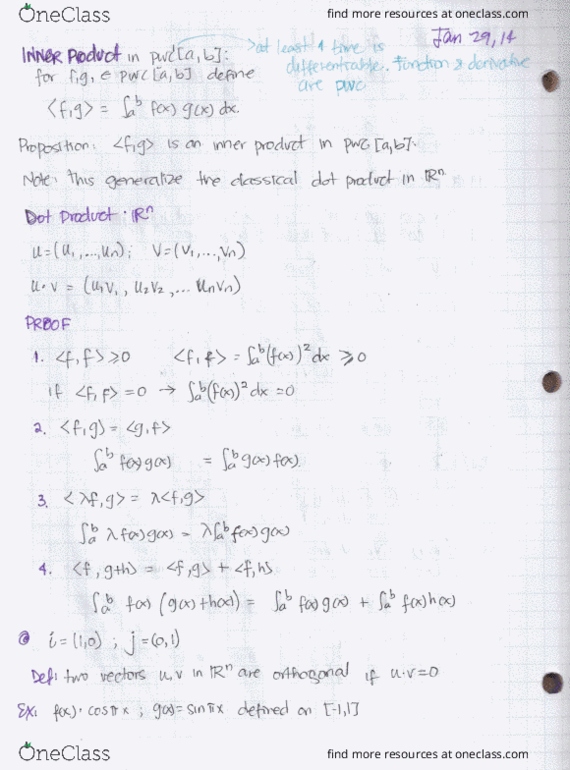 OneClass
find more resources at oneclass.com
Jan 29, 14
INNER Product in pwc[a,b]:
at least 1 time is
differentiable. Function & derivative
are pwc
for f,g, ∈ pwc [a,b] define
<f,g> = ∫ₐᵇ f(x) g(x) dx.
Proposition: <f,g> is an inner product in pwc [a,b].
Note: This generalize the classical dot product in ℝⁿ
Dot Product: ℝⁿ
u=(u₁,...,un); v=(v₁,...,vn)
u·v = (u₁v₁, u₂v₂,... unvn)
PROOF
1. <f,f> ≥0 <f,f> = ∫ₐᵇ(f(x))²dx ≥0
if <f,f> =0 → ∫ₐᵇ(f(x))²dx =0
2. <f,g> = <g,f>
∫ₐᵇ f(x)g(x) = ∫ₐᵇ g(x)f(x)
3. <λf,g> = λ<f,g>
∫ₐᵇ λf(x)g(x) = λ∫ₐᵇ f(x)g(x)
4. <f,g+h> = <f,g> + <f,h>
∫ₐᵇ f(x) (g(x)+h(x)) = ∫ₐᵇ f(x)g(x) + ∫ₐᵇ f(x)h(x)
i=(1,0) ; j=(0,1)
Def: two vectors u,v in ℝⁿ are orthogonal if u·v=0
Ex: f(x)·cosπx ; g(x)=sinπx defined on [-1,1]
OneClass
find more resources at oneclass.com